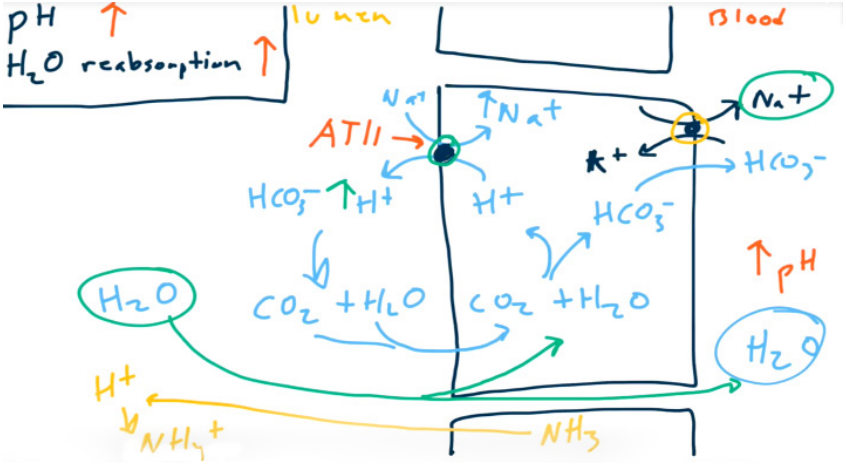 pH ↑
H₂O reabsorption ↑
lumen
Blood
Na+
↑Na+
Na+
ATII →
K+
HCO₃⁻
HCO₃⁻ ↑H+
H+
HCO₃⁻
↑pH
H₂O
CO₂ + H₂O
CO₂ + H₂O
H₂O
H+
NH₄+
NH₃